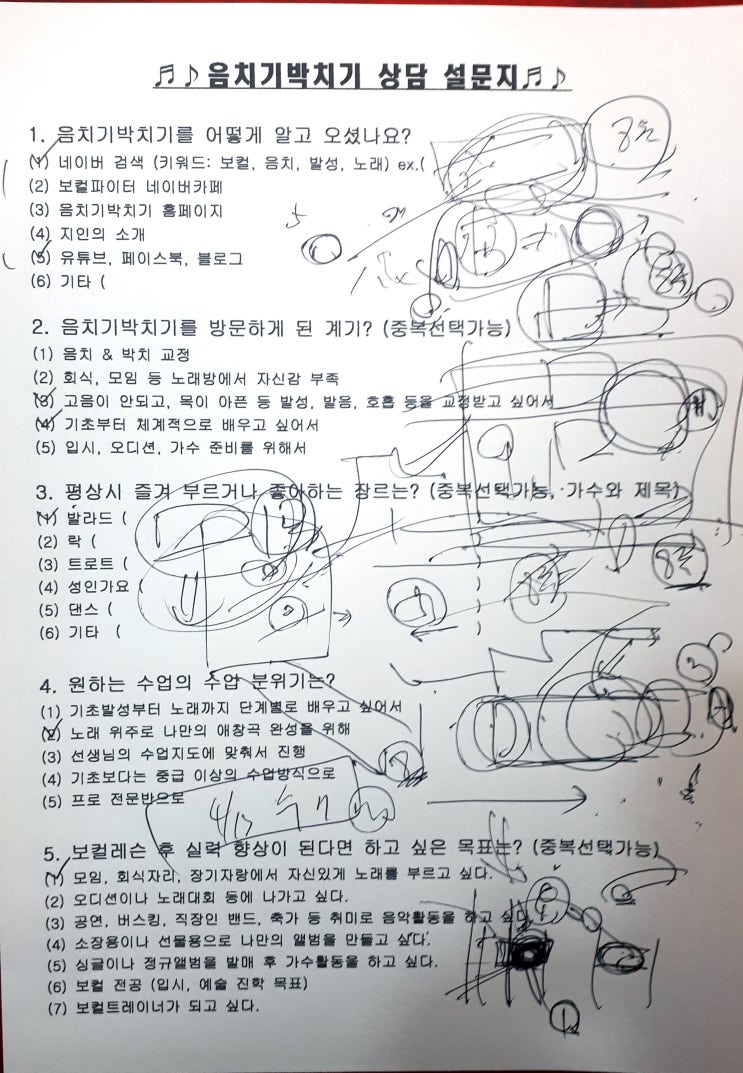 ♬♪음치기박치기 상담 설문지♬♪
1. 음치기박치기를 어떻게 알고 오셨나요?
(1) 네이버 검색 (키워드: 보컬, 음치, 발성, 노래) ex.(
(2) 보컬파이터 네이버카페
(3) 음치기박치기 홈페이지
(4) 지인의 소개
(5) 유튜브, 페이스북, 블로그
(6) 기타 (
2. 음치기박치기를 방문하게 된 계기? (중복선택가능)
(1) 음치 & 박치 교정
(2) 회식, 모임 등 노래방에서 자신감 부족
(3) 고음이 안되고, 목이 아픈 등 발성, 발음, 호흡 등을 교정받고 싶어서
(4) 기초부터 체계적으로 배우고 싶어서
(5) 입시, 오디션, 가수 준비를 위해서
3. 평상시 즐겨 부르거나 좋아하는 장르는? (중복선택가능, 가수와 제목)
(1) 발라드 (
(2) 락 (
(3) 트로트 (
(4) 성인가요 (
(5) 댄스 (
(6) 기타 (
4. 원하는 수업의 수업 분위기는?
(1) 기초발성부터 노래까지 단계별로 배우고 싶어서
(2) 노래 위주로 나만의 애창곡 완성을 위해
(3) 선생님의 수업지도에 맞춰서 진행
(4) 기초보다는 중급 이상의 수업방식으로
(5) 프로 전문반으로
5. 보컬레슨 후 실력 향상이 된다면 하고 싶은 목표는? (중복선택가능)
(1) 모임, 회식자리, 장기자랑에서 자신있게 노래를 부르고 싶다.
(2) 오디션이나 노래대회 등에 나가고 싶다.
(3) 공연, 버스킹, 직장인 밴드, 축가 등 취미로 음악활동을 하고 싶다.
(4) 소장용이나 선물용으로 나만의 앨범을 만들고 싶다.
(5) 싱글이나 정규앨범을 발매 후 가수활동을 하고 싶다.
(6) 보컬 전공 (입시, 예술 진학 목표)
(7) 보컬트레이너가 되고 싶다.